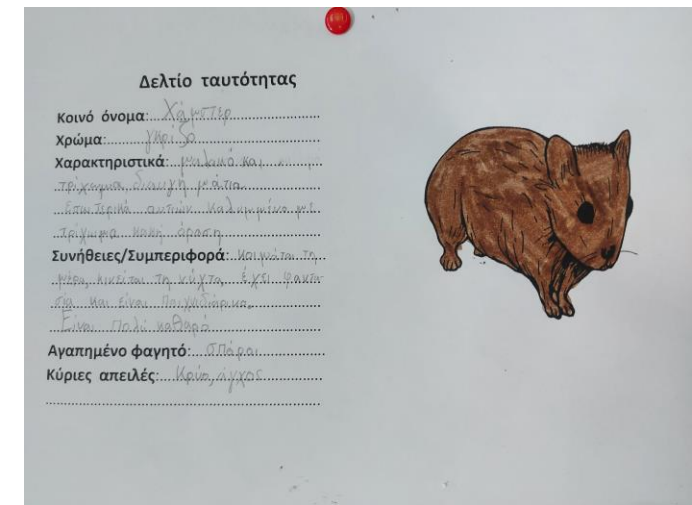 Δελτίο ταυτότητας
Κοινό όνομα: Χάμστερ
Χρώμα: γκρίζο
Χαρακτηριστικά: μαλακό και
τρίχωμα, διαυγή μάτια.
Εσωτερικά αυτιών καλυμμένα με
τρίχωμα κακή όραση
Συνήθειες/Συμπεριφορά: Κοιμάται τη
μέρα, κινείται τη νύχτα, έχει φαντα-
σία και είναι παιχνιδιάρικα.
Είναι πολύ καθαρό
Αγαπημένο φαγητό: σπόροι
Κύριες απειλές: Κρύο, άγχος